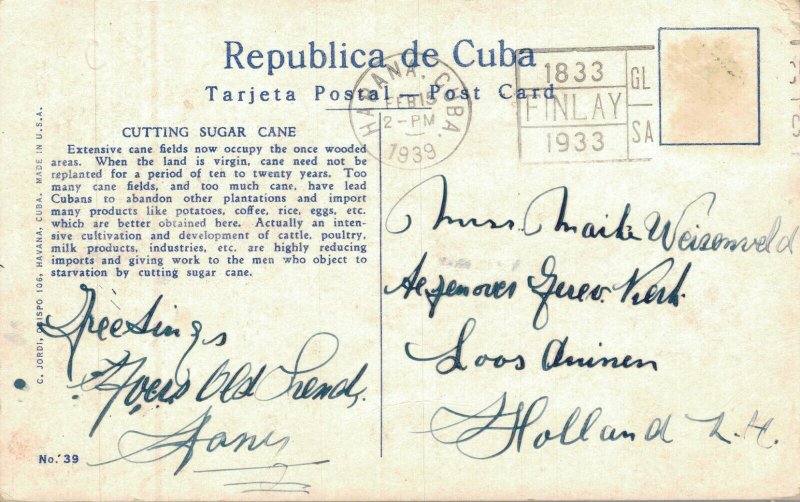 Republica de Cuba
Tarjeta Postal — Post Card
HAVANA, CUBA.
FEB 15
2-PM
1939
1833
FINLAY
1933
GL
SA
CUTTING SUGAR CANE
Extensive cane fields now occupy the once wooded
areas. When the land is virgin, cane need not be
replanted for a period of ten to twenty years. Too
many cane fields, and too much cane, have lead
Cubans to abandon other plantations and import
many products like potatoes, coffee, rice, eggs, etc.
which are better obtained here. Actually an inten-
sive cultivation and development of cattle, poultry,
milk products, industries, etc. are highly reducing
imports and giving work to the men who object to
starvation by cutting sugar cane.
C. JORDI, OBISPO 106, HAVANA, CUBA. MADE IN U.S.A.
Greetings
Old
No. 39
Weisenveld
Loos Duinen
Holland